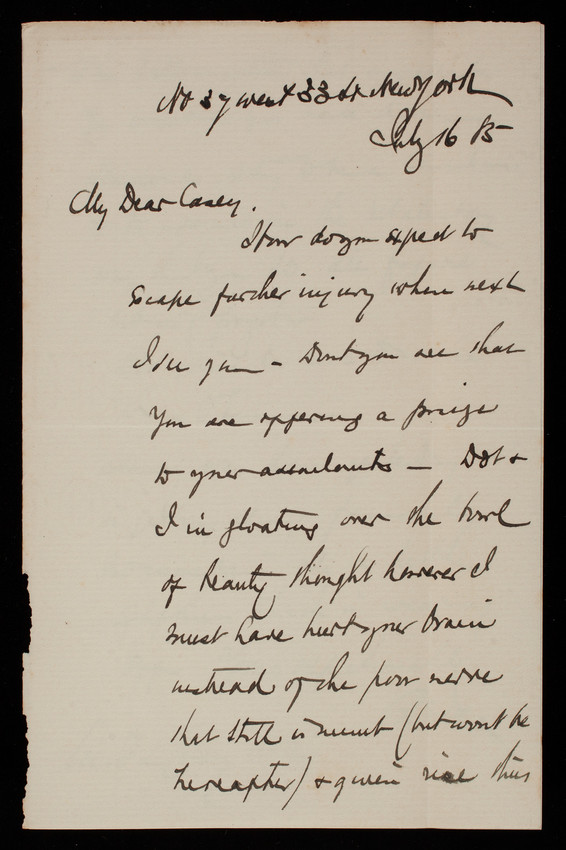 No 37 West 33 St. New York
July 16 85
My Dear Casey.
How do you expect to
escape further injury when next
I see you – Dont you see that
you are offering a prize
to your assailants – Dot &
I in gloating over the bowl
of beauty thought however I
must have hurt your brain
instead of the poor nerve
that still is numb (but wont be
hereafter) & given rise thus